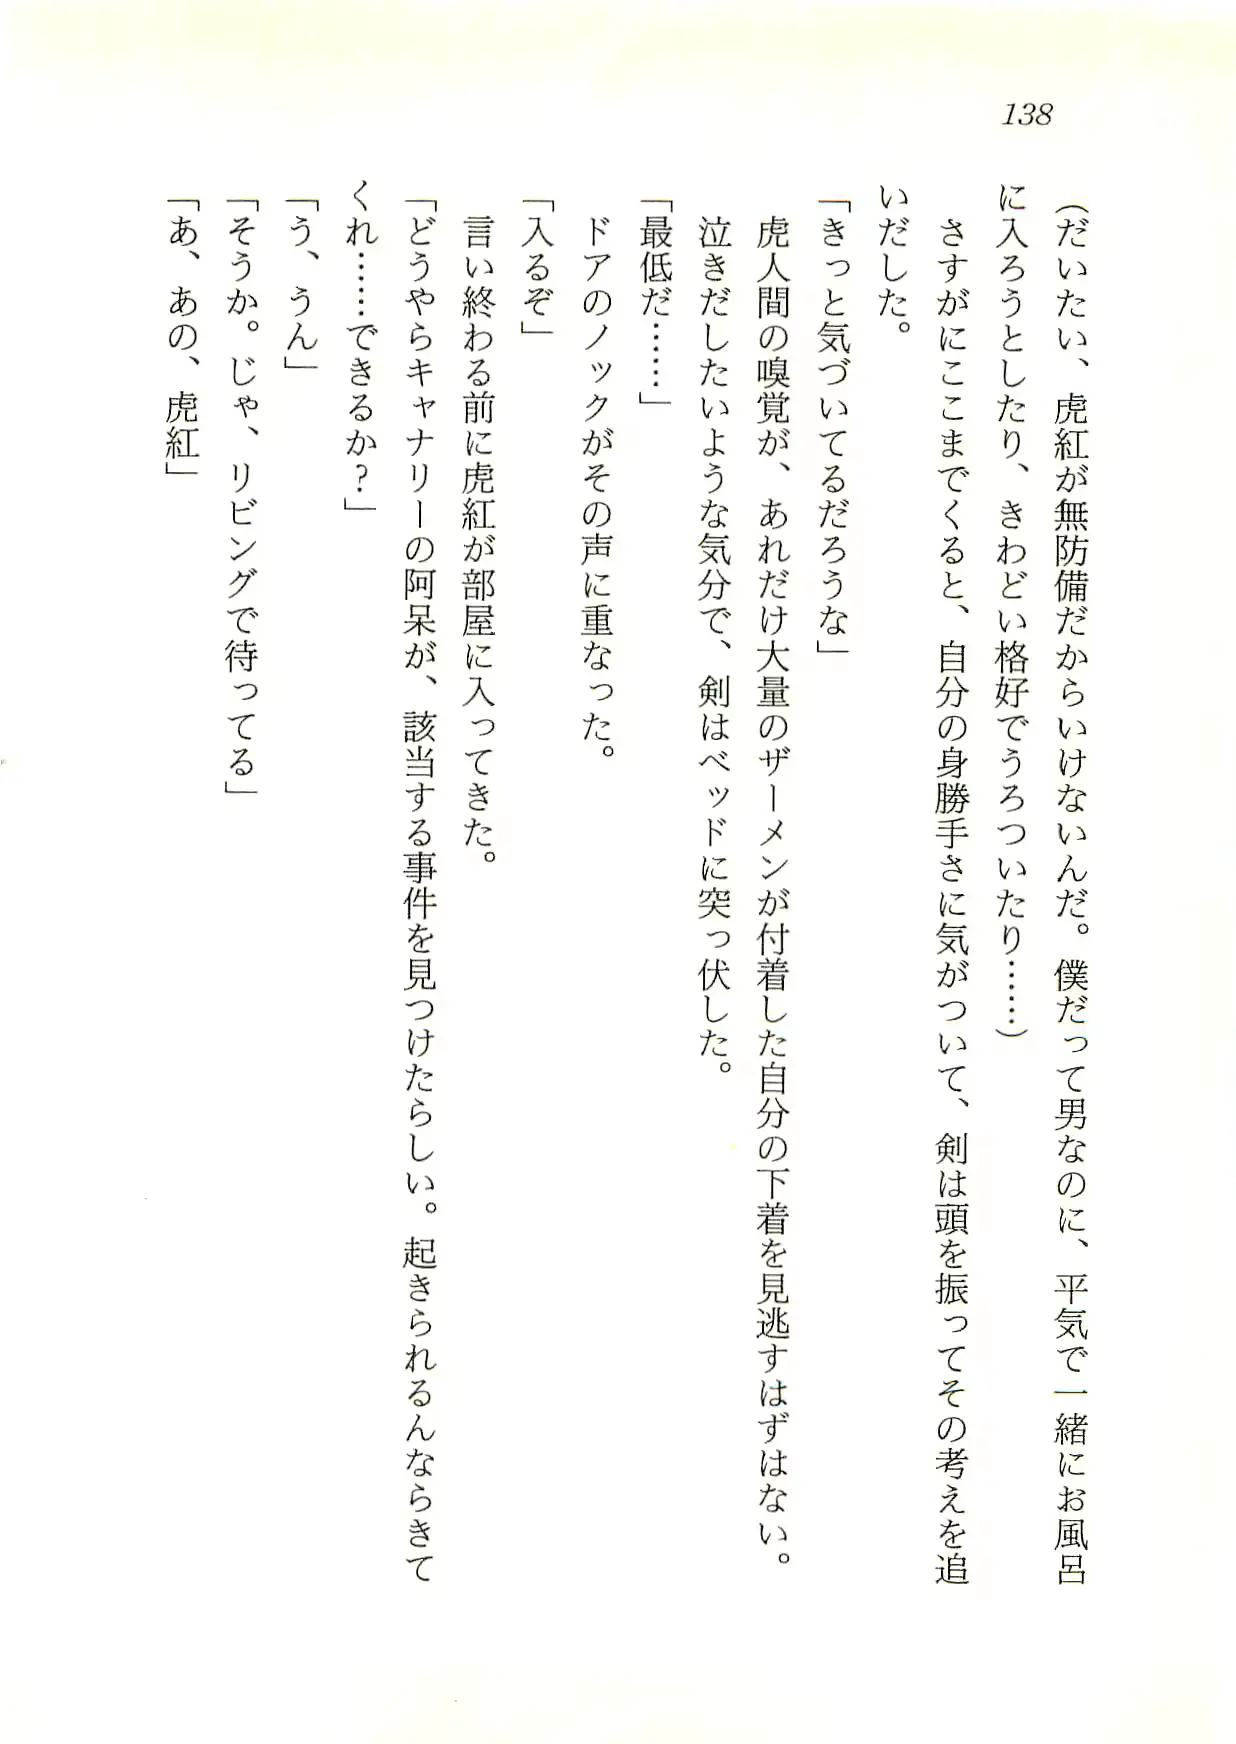 138
(だいたい、虎紅が無防備だからいけないんだ。僕だって男なのに、平気で一緒にお風呂
に入ろうとしたり、きわどい格好でうろついたり……)
さすがにここまでくると、自分の身勝手さに気がついて、剣は頭を振ってその考えを追
いだした。
「きっと気づいてるだろうな」
虎人間の嗅覚が、あれだけ大量のザーメンが付着した自分の下着を見逃すはずはない。
泣きだしたいような気分で、剣はベッドに突っ伏した。
「最低だ……」
ドアのノックがその声に重なった。
「入るぞ」
言い終わる前に虎紅が部屋に入ってきた。
「どうやらキャナリーの阿呆が、該当する事件を見つけたらしい。起きられるんならきて
くれ……できるか?」
「う、うん」
「そうか。じゃ、リビングで待ってる」
「あ、あの、虎紅」